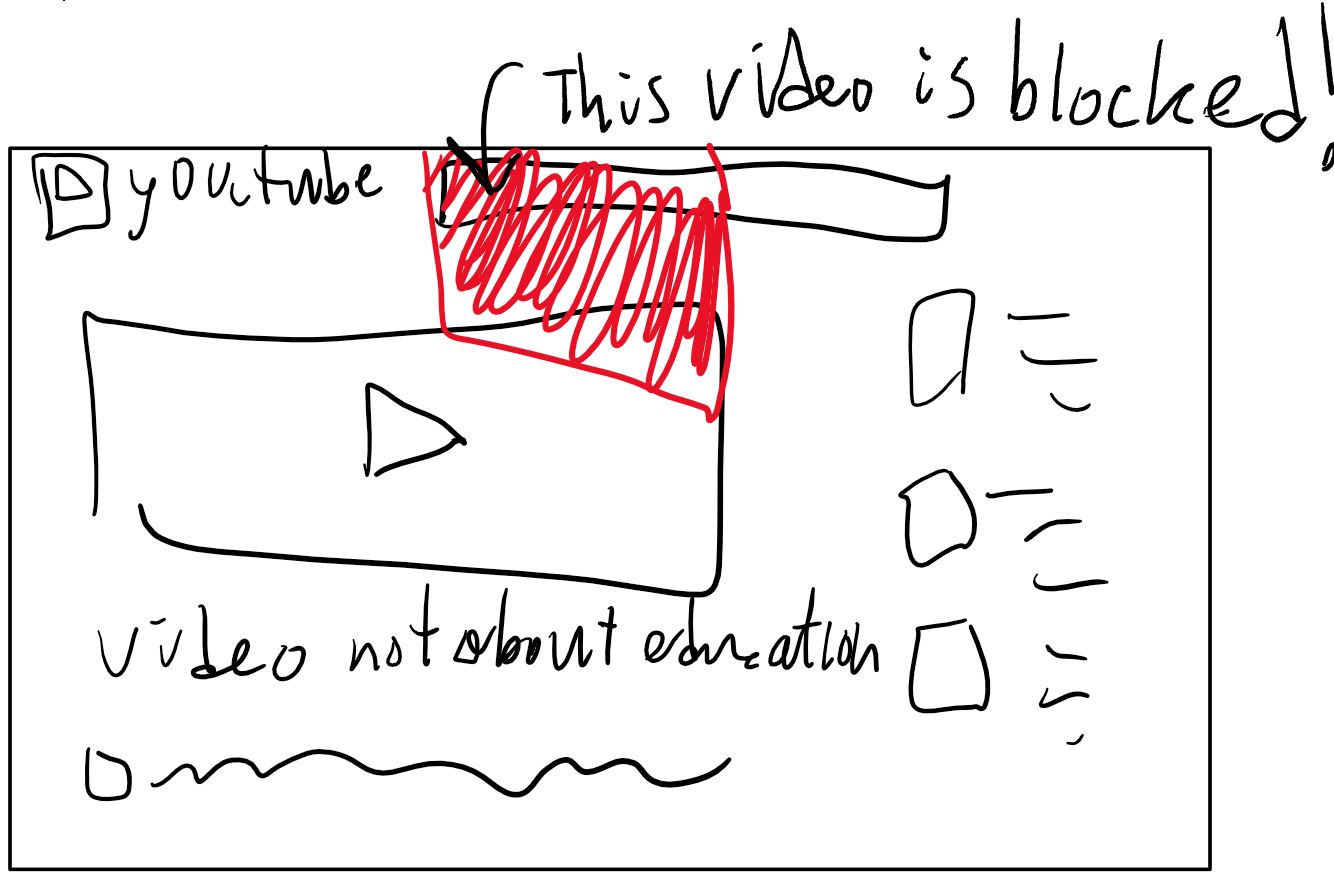 This video is blocked!
youtube
video not about education